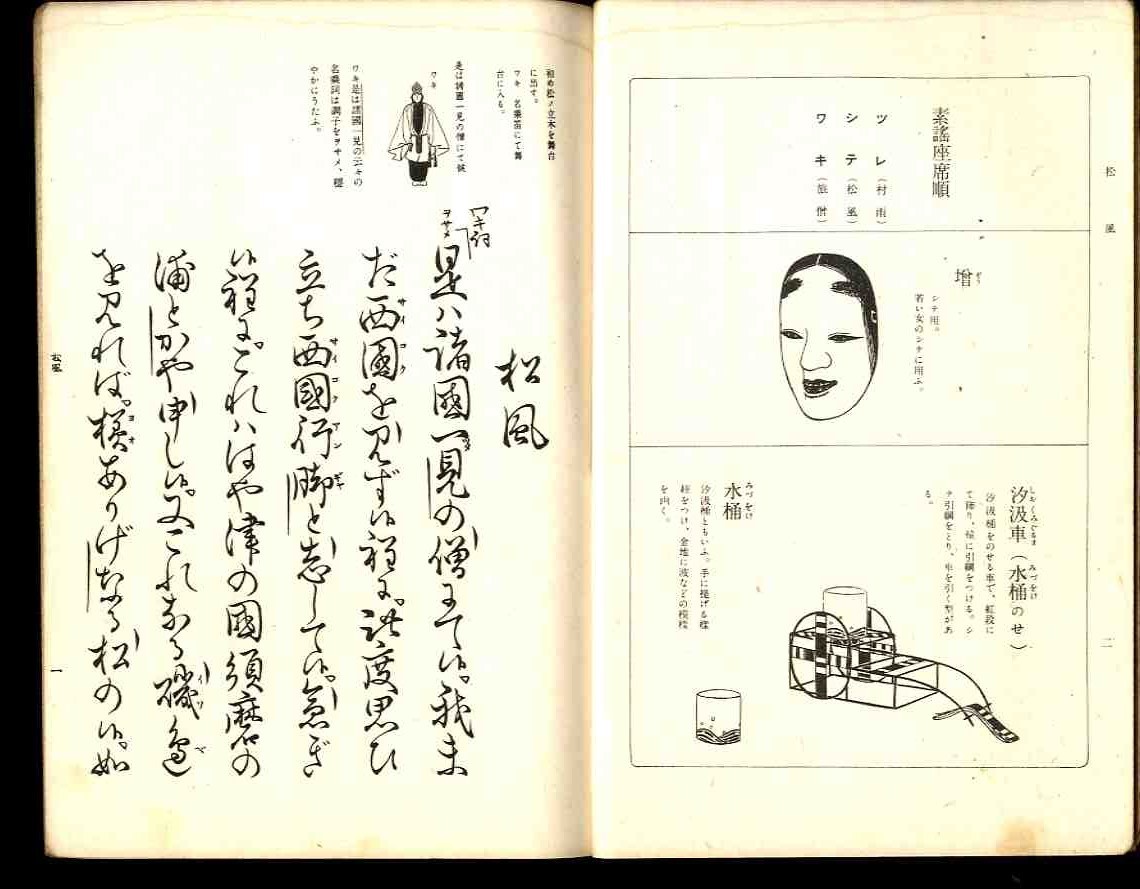 松風
二
素謡座席順
ツレ(村雨)
シテ(松風)
ワキ(旅僧)
増
ぞう
シテ用。
若い女のシテに用ふ。
汐汲車(水桶のせ)
しおくみぐるま みづをけ
汐汲桶をのせる車で、紅段に
て飾り、榥に引綱をつける。シ
テ引綱をとり、車を引く型があ
る。
水桶
みづをけ
汐汲桶ともいふ。手に提げる様
紐をつけ、金地に波などの模様
を画く。
初め松ノ立木を舞台
に出す。
ワキ 名乗笛にて舞
台に入る。
是は諸國一見の僧にて候
ワキ
ワキ是は諸國一見の云々の
名乗詞は調子をヲサメ、穏
やかにうたふ。
松風
ワキ詞
ヲサメ
是ハ諸國一見の僧にて候。我ま
だ西國を見ず候程に。此度思ひ
サイコク
立ち西國行脚と志して候。急ぎ
サイコクアンギャ
候程に。これハはや津の國須磨の
浦とかや申し候。又これなる磯邊
イソベ
を見れば。様ありげなる松の候。如
ヨオ
松風
一